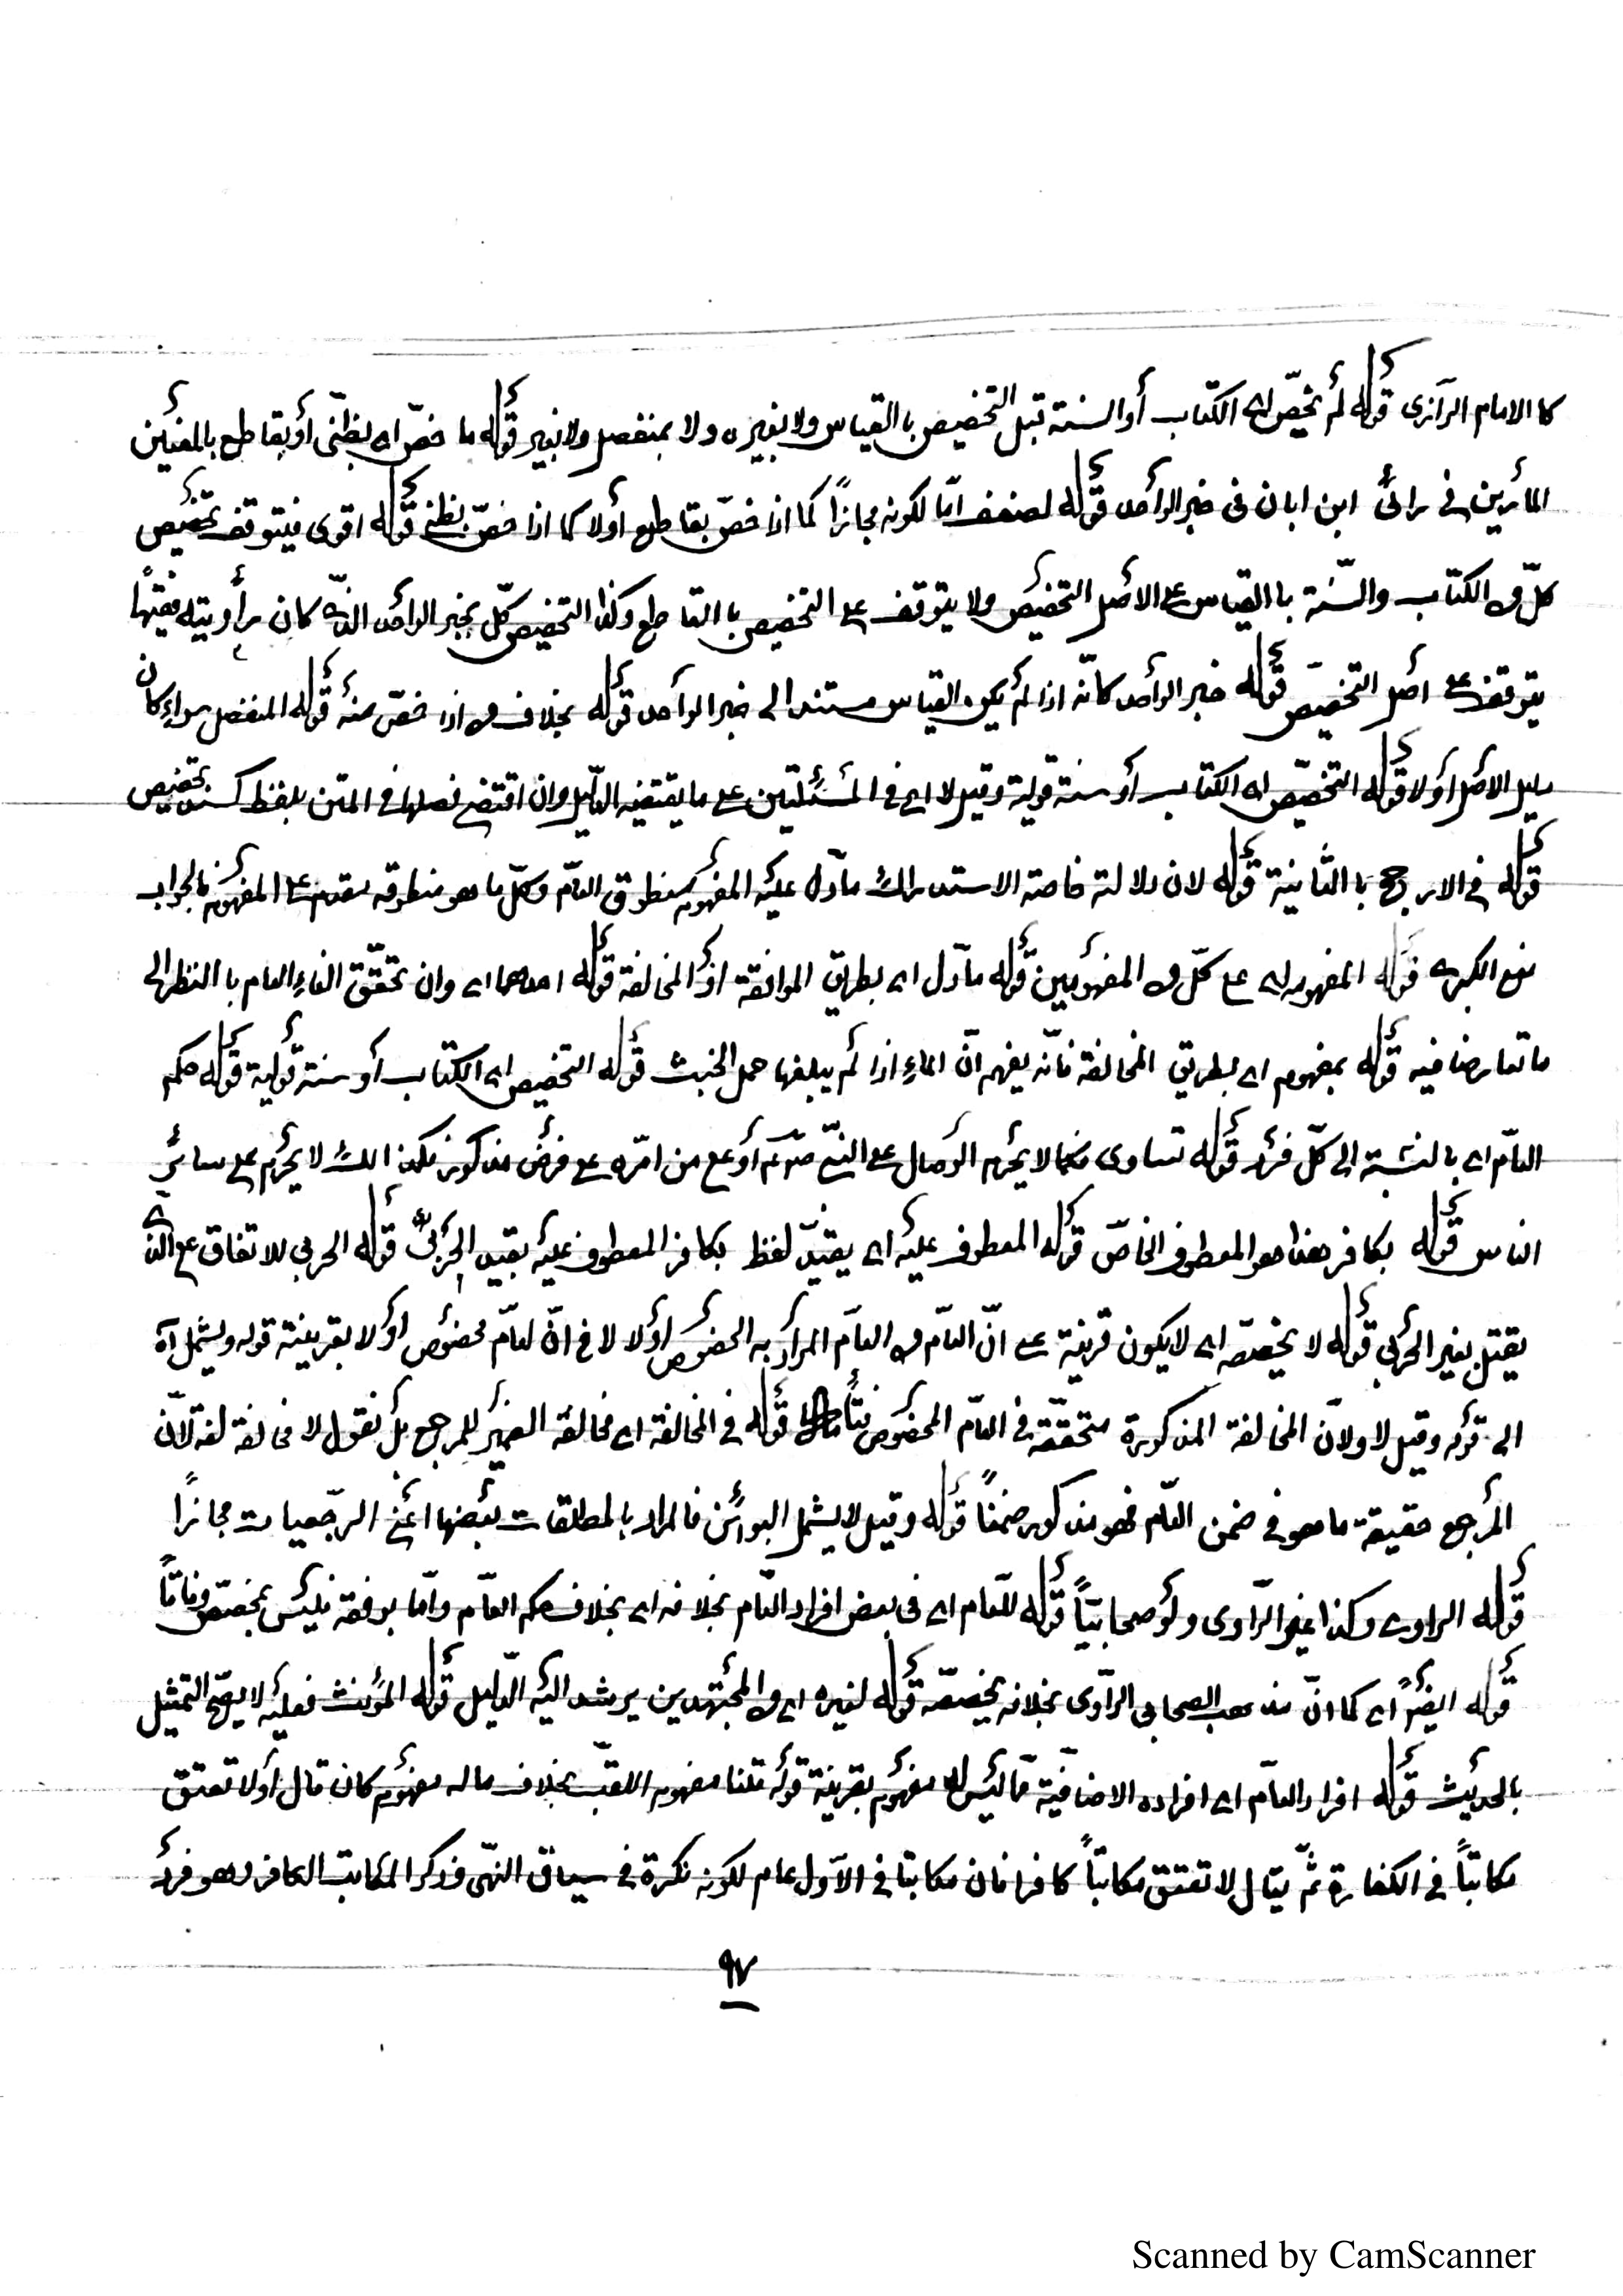 كا الامام الرازى قوله لم يخص اى الكتاب أو السنة قبل التخصيص با القياس ولا بغيره ولا بمنفصل ولا بغير قوله ما خص اى بظنى أو بقاطع بالمعنيين
المأرين فى رائ ابن ابان فى خبر الواحد قوله لضعفه امّا لكونه مجازاً كما اذا خصّ بقاطع أولا كما اذا خصّ بظنى قوله اقوى فيتوقف تخصيص
كلّ من الكتاب والسّنة با القياس على الاصل التخصيص ولا يتوقف على التخصيص با القاطع وكذا التخصيص كلّ بخبر الواحد الذى كان راويته فقيهاً
يتوقف على اصل التخصيص قوله خبر الواحد كانّه اذا لم يكن القياس مستندا الى خبر الواحد قوله بخلاف من اذا خصّ منه قوله المنفصل سواء كان
دليل الاصل أولا قوله التخصيص اى الكتاب أو سنة قولية وقيل لا اى فى المسئلتين على ما يقتضيه الدليل وان اقتضى فصلها فى المتن بلفظ تخصيص
قوله فى الارجح با الثانية قوله لان دلالته خاصة الاستدراك مادّل عليه المفهوم بمنطوق العامّ وكلّ ما هو منطوقه مقدم على المفهوم فالجواب
منع الكبرى قوله المفهوم اى على كلّ من المفهومين قوله مادّل اى بطريق الموافقة أو المخالفة قوله احدهما اى وان تحقّق الغاء العام با النظر الى
ما تعارضا فيه قوله بمفهوم اى بطريق المخالفة فانّه يفهم انّ الماء اذا لم يبلغها حمل الخبث قوله التخصيص اى الكتاب أو سنة قولية قوله حكم
العامّ اى بالنسبة الى كلّ فرد قوله تساوى فكما لا يحرم الوصال على النبى صلعم أو على من امره على فرض مذكور فكذالك لا يحرم على سائر
الناس قوله بكافر هذا هو المعطوف الخاصّ قوله المعطوف عليه اى يقيّد لفظ بكافر المعطوف عليه بقيد الحربى قوله الحربى للاتفاق على انّه
يقتل بغير الحربى قوله لا يخصّصه اى لا يكون قرينة على انّ العامّ من العامّ المرأد به الخصوص أولا لا فى انّ لعامّ مخصوص أولا بقرينة قوله ويشمل آه
الى قوله وقيل لا ولانّ المخالفة المذكورة متحقّقة فى العامّ المخصوص قوله فى المخالفة اى مخالفة الضمير للمرجع بل نقول لا مخالفة لغة لانّ
المرجع حقيقة ما هو فى ضمن العامّ فهو مذكور ضمناً قوله وقيل لا يشمل البوائن فالمراد بالمطلقات بعضها اعنى الرجعيات مجازاً
قوله الراوى وكذا غير الراوى ولو صحابيّاً قوله للعام اى فى بعض افراد العّام بخلافه اى بخلاف حكم العّام وامّا بوفقه فليس بمخصّص وفاقاً
قوله ايضاً اى كما انّ مذهب الصحابى الراوى بخلافه يخصّصه قوله لغيره اى من المجتهدين يرشد اليه الدّليل قوله المؤنث فعليه لا يصحّ التمثيل
بالحديث قوله افراد العامّ اى افراده الاضافية ممّا ليس له مفهوم بقرينة قوله قلنا مفهوم اللقب بخلاف ما له مفهوم كان قال أولا تعتق
مكاتباً فى الكفارة ثمّ يقال لا تعتق مكاتباً كافرا فان مكاتبا فى الاول عام لكونه نكرة فى سياق النهى وذكر المكاتب الكافر وهو فرد
٩٧
Scanned by CamScanner